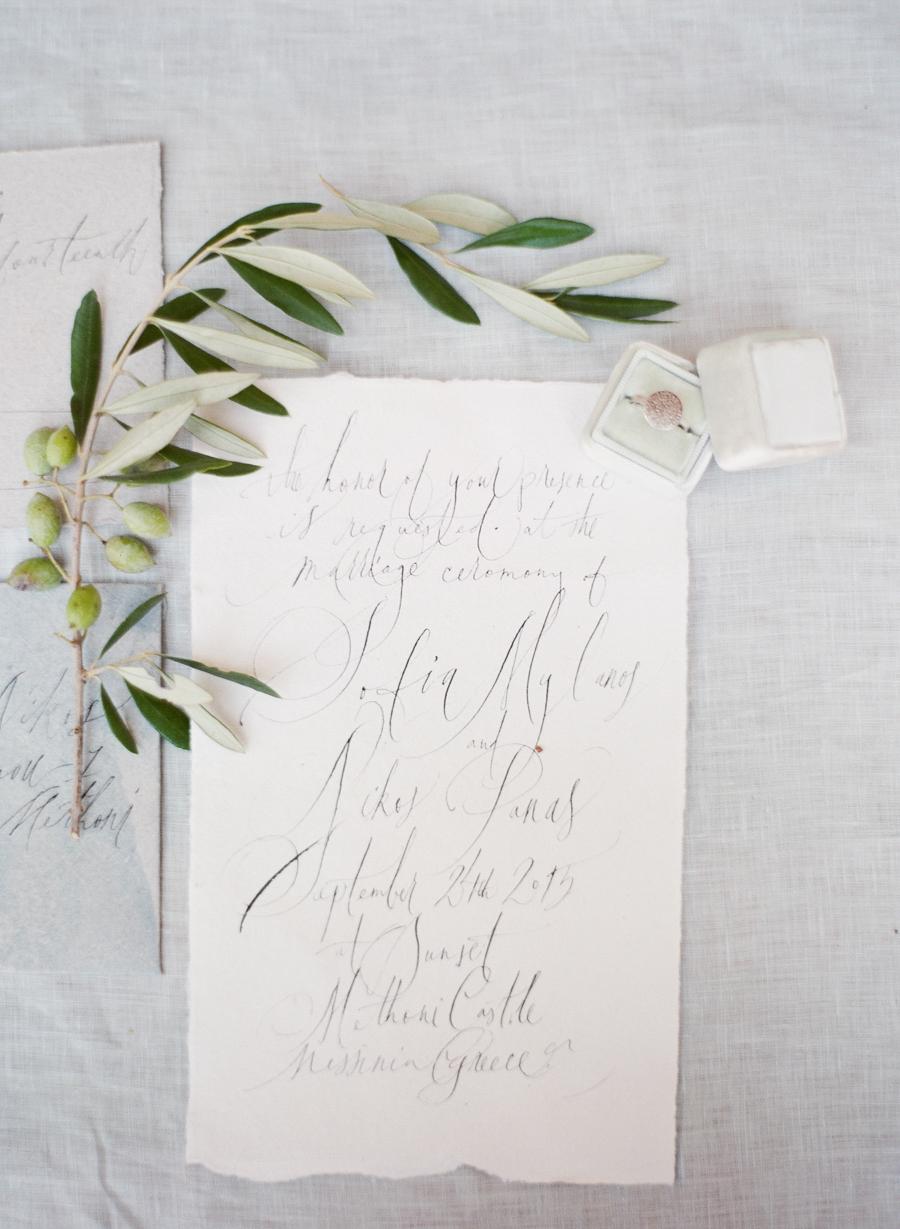 the honor of your presence
is requested. at the
marriage ceremony of
Sofia Mylanos
and
Nikos Panas
September 24th 2015
at Sunset
Methoni Castle
Messinia Greece
fourteenth
Nikos
Methoni